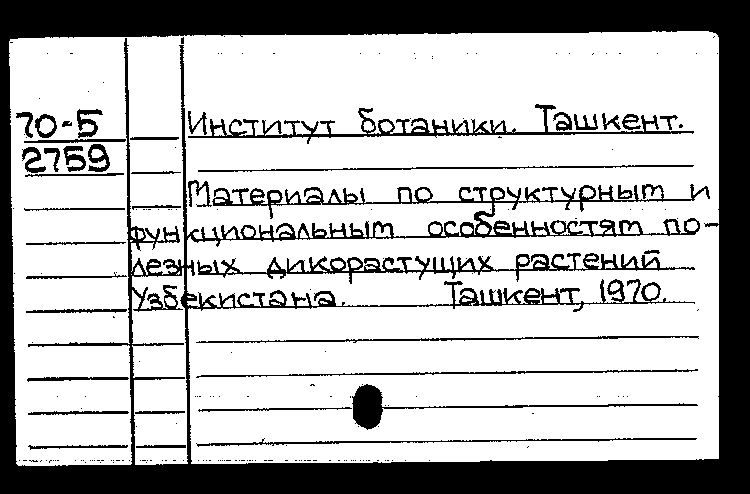 70-Б
2759
Институт ботаники. Ташкент.
Материалы по структурным и
функциональным особенностям по-
лезных дикорастущих растений
Узбекистана. Ташкент, 1970.